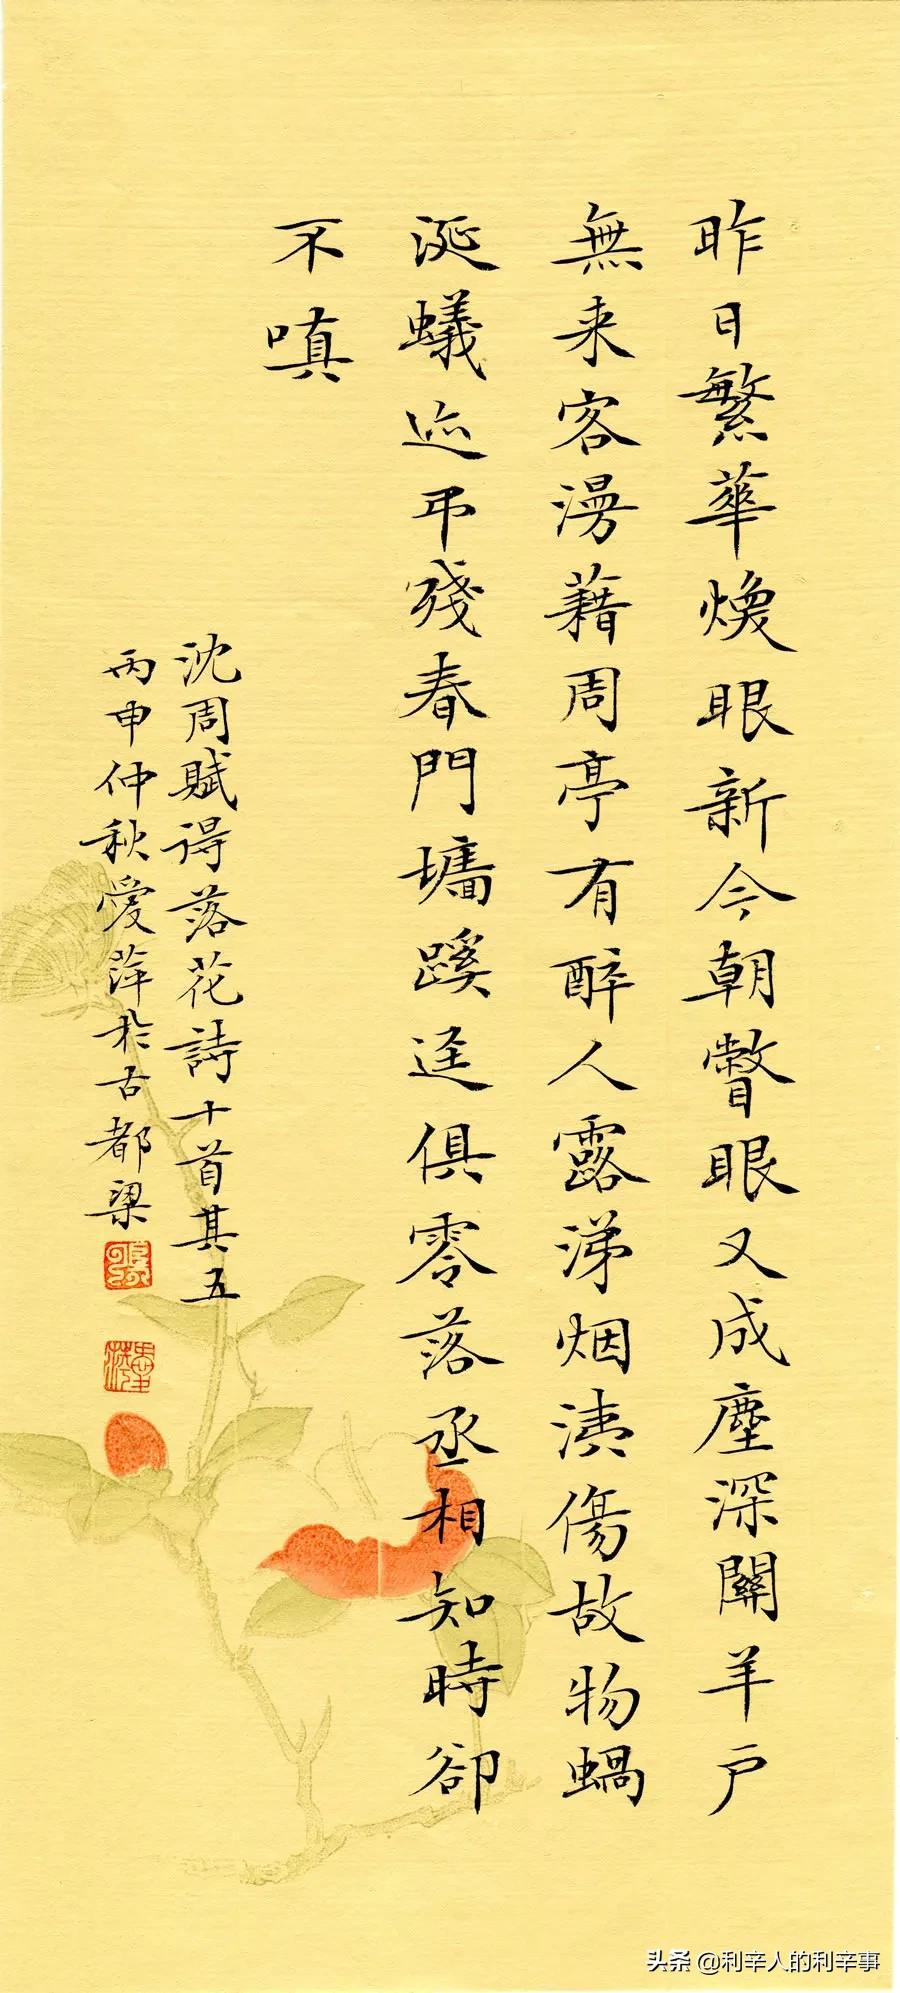 昨日繁華煥眼新今朝瞥眼又成塵深關羊戶
無来客漫藉周亭有醉人露涕烟洟傷故物蝸
涎蟻迹弔殘春門墻蹊逕俱零落丞相知時卻
不嗔
沈周賦得落花詩十首其五
丙申仲秋愛萍於古都梁
头条 @利辛人的利辛事